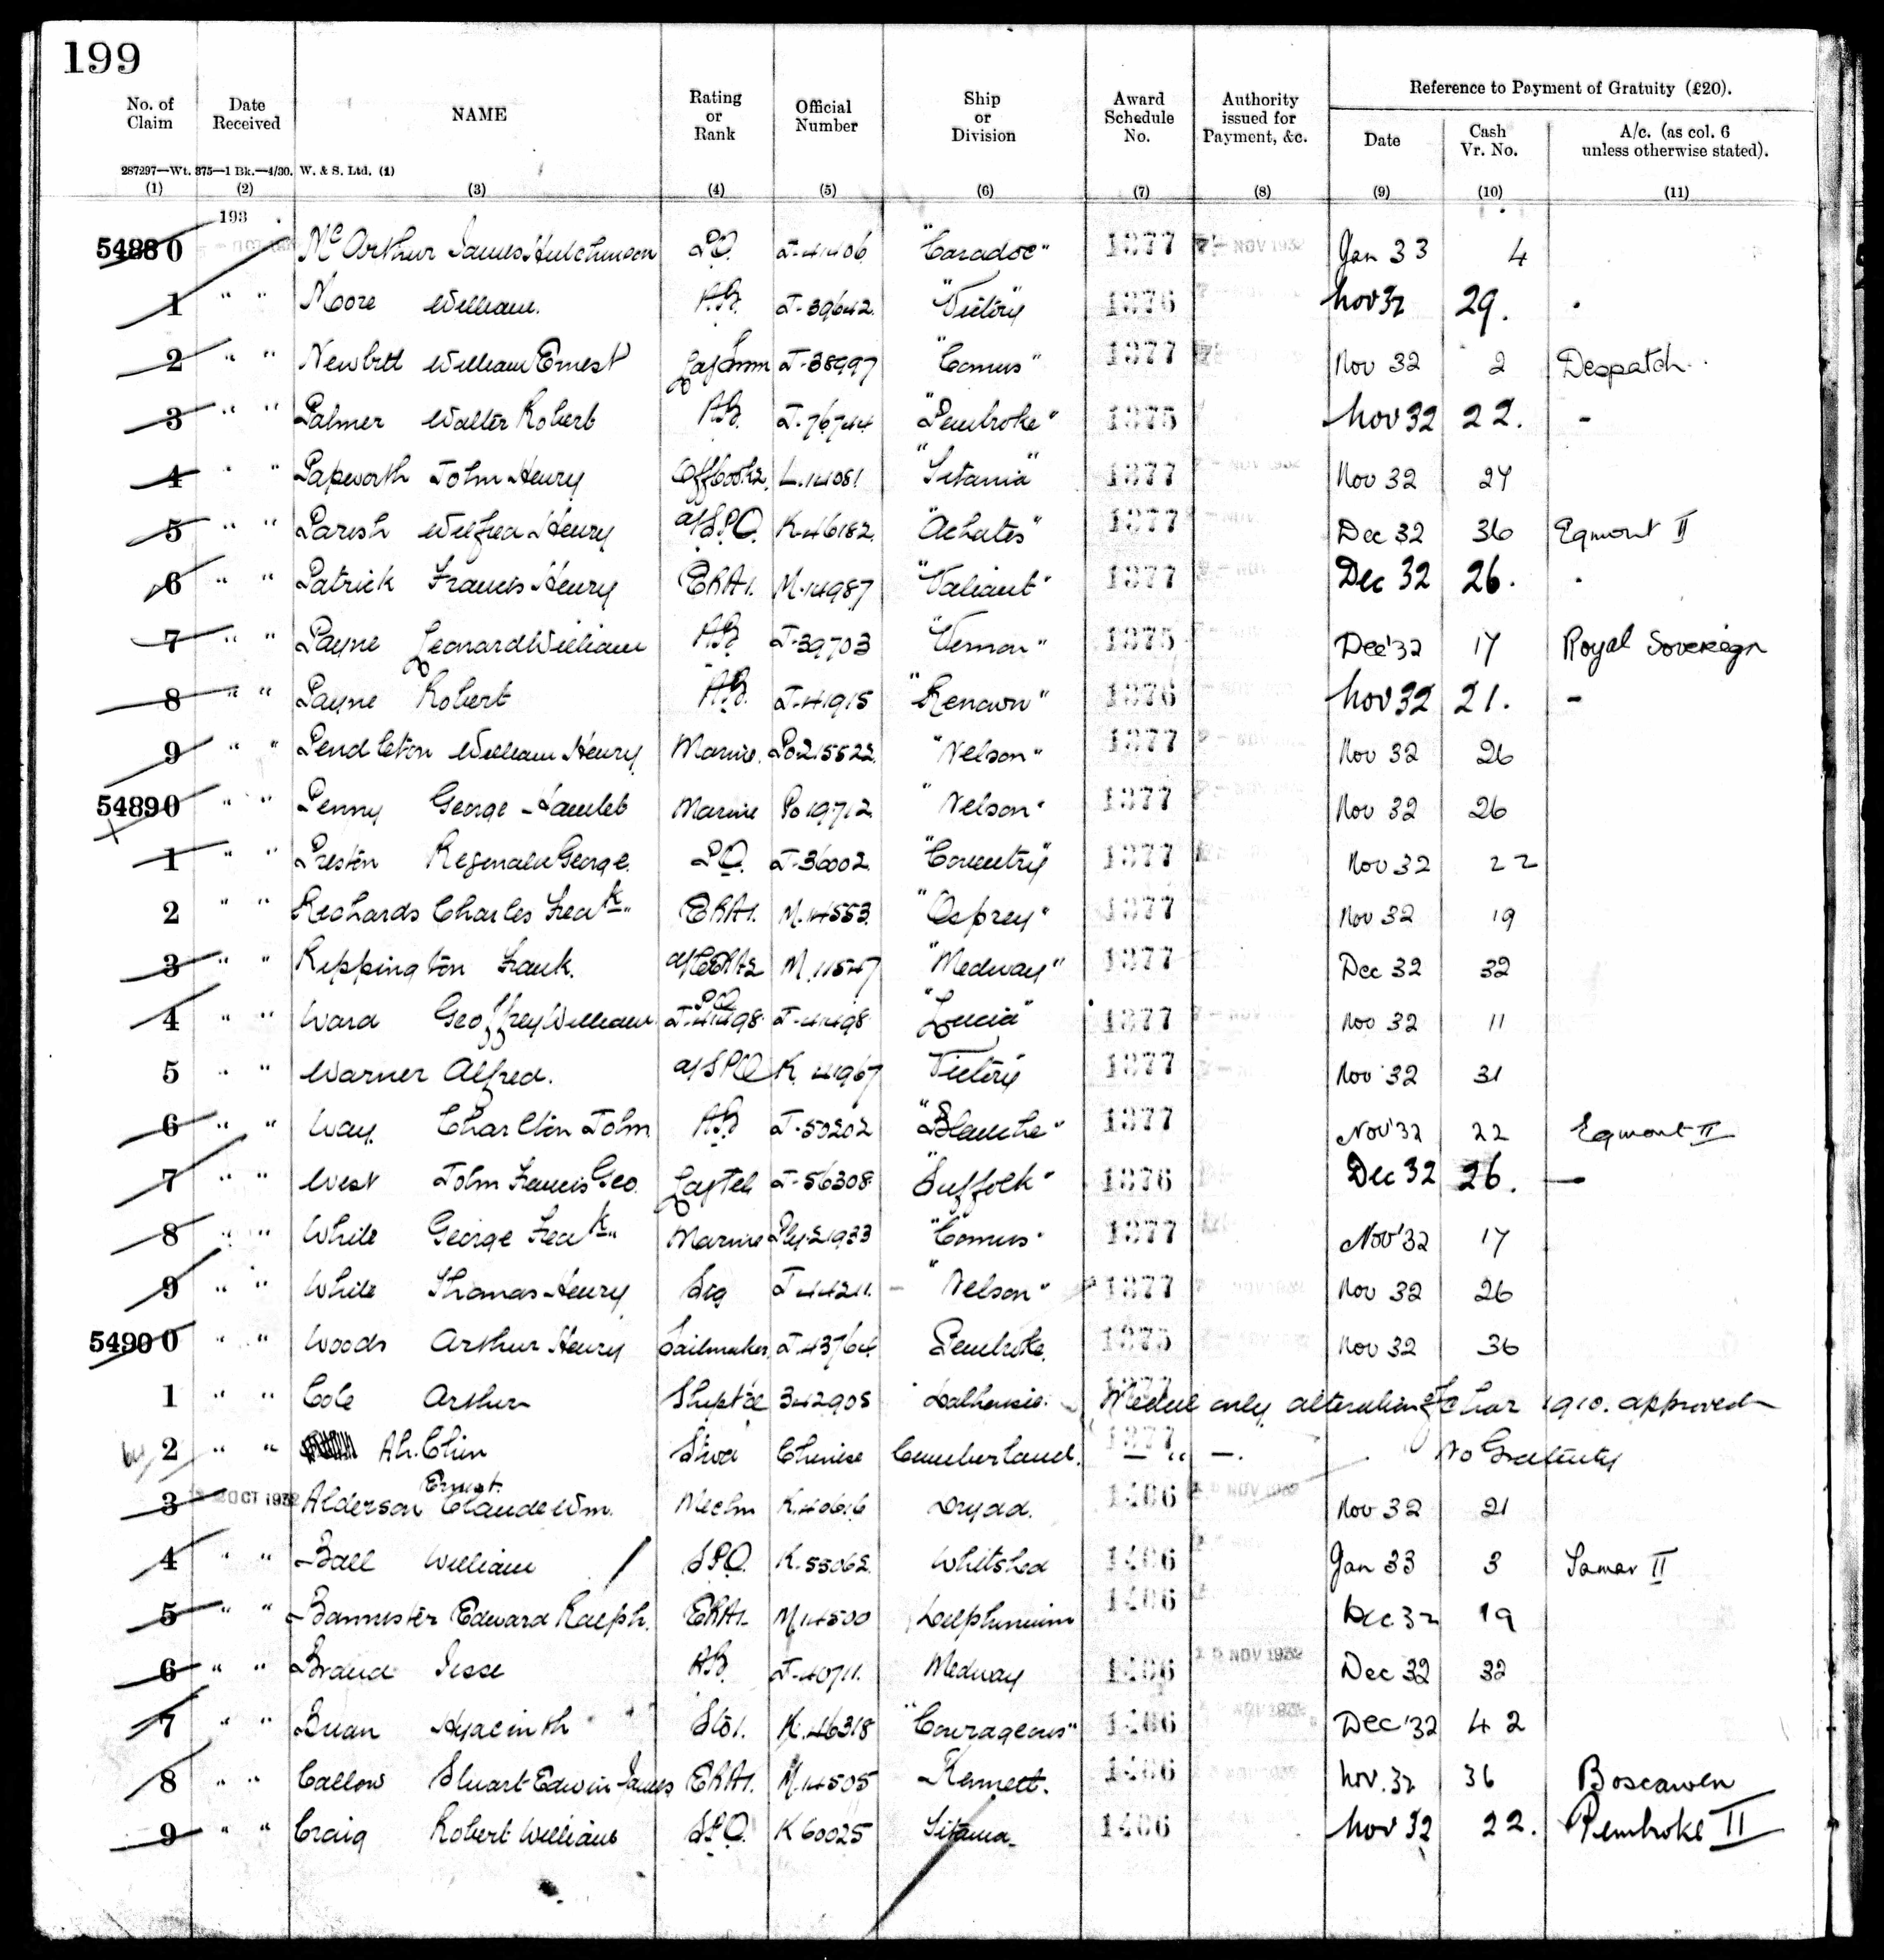 199
No. of Claim | Date Received | NAME | Rating or Rank | Official Number | Ship or Division | Award Schedule No. | Authority issued for Payment, &c. | Reference to Payment of Gratuity (£20).
Date | Cash Vr. No. | A/c. (as col. 6 unless otherwise stated).
287297—Wt. 375—1 Bk.—4/30. W. & S. Ltd. (1)
(1) (2) (3) (4) (5) (6) (7) (8) (9) (10) (11)
193
54880 McArthur James Hutchinson P.O. J-41406 "Caradoc" 1377 NOV 1932 Jan 33 4
1 " " Moore William. A.B. J-39642 "Victory" 1376 Nov 32 29.
2 " " Newbitt William Ernest J-38997 "Comus" 1377 Nov 32 2 Despatch
3 " " Palmer Walter Robert A.B. J-76744 "Pembroke" 1375 Nov 32 22. -
4 " " Papworth John Henry L.14081 "Titania" 1377 Nov 32 27
5 " " Parish Wilfred Henry a/S.P.O. K-46182 "Achates" 1377 Dec 32 36 Egmont II
6 " " Patrick Francis Henry ERA1. M.14987 "Valiant" 1377 Dec 32 26.
7 " " Payne Leonard William A.B. J-39703 "Vernon" 1375 Dec '32 17 Royal Sovereign
8 " " Payne Robert A.B. J-41915 "Renown" 1376 Nov 32 21. -
9 " " Pendleton William Henry Marine Po215522 "Nelson" 1377 Nov 32 26
54890 " " Penny George Hamlet Marine Po 19712 "Nelson" 1377 Nov 32 26
1 " " Preston Reginald George P.O. J-36002 "Coventry" 1377 Nov 32 22
2 " " Richards Charles Fredk ERA1. M.14553 "Osprey" 1377 Nov 32 19
3 " " Rippington Frank. M.11547 "Medway" 1377 Dec 32 32
4 " " Ward Geoffrey William P.O. J-41498 J-41498 "Lucia" 1377 Nov 32 11
5 " " Warner Alfred. a/S.P.O. K. 41967 Victory 1377 Nov 32 31
6 " " Way Charlton John A.B. J-50202 "Blanche" 1377 Nov '32 22 Egmont II
7 " " West John Francis Geo. J-56308 "Suffolk" 1376 Dec 32 26. —
8 " " White George Fredk Marine Ply-21933 "Comus" 1377 Nov '32 17
9 " " White Thomas Henry Sig J-44211 "Nelson" 1377 Nov 32 26
54900 " " Woods Arthur Henry Sailmaker J-43764 Pembroke 1375 Nov 32 36
1 " " Cole Arthur 342905 Dalhousie 1377 Medal only alteration of Char 1910. approved
2 " " Ah. Chin Chinese Cumberland. 1377 — " —. No Gratuity
3 OCT 1932 Alderson Ernest Claude Wm. Mechn K.40616 Dryad. 1406 NOV 1932 Nov 32 21
4 " " Ball William S.P.O. K.55062 Whitshed 1406 Jan 33 3 Tamar II
5 " " Bannister Edward Ralph. ERA1. M14500 Delphinium 1406 Dec 32 19
6 " " Brand Jesse A.B. J-40711. Medway 1406 NOV 1932 Dec 32 32
7 " " Buan Hyacinth Sto1. K.46318 "Courageous" 1406 Dec '32 42
8 " " Callow Stuart Edwin James ERA1. M.14505 Kennett. 1406 Nov. 32 36 Boscawen
9 " " Craig Robert William S.P.O. K60025 Titania 1406 Nov 32 22. Pembroke II